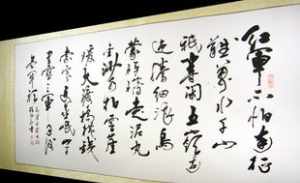 紅軍不怕遠征
難萬水千山
祇等闲五嶺逶
迤騰細浪烏
蒙磅礴走泥丸
金沙水拍雲崖
暖大渡橋橫鐵索
寒更喜岷山千
里雪三軍過後